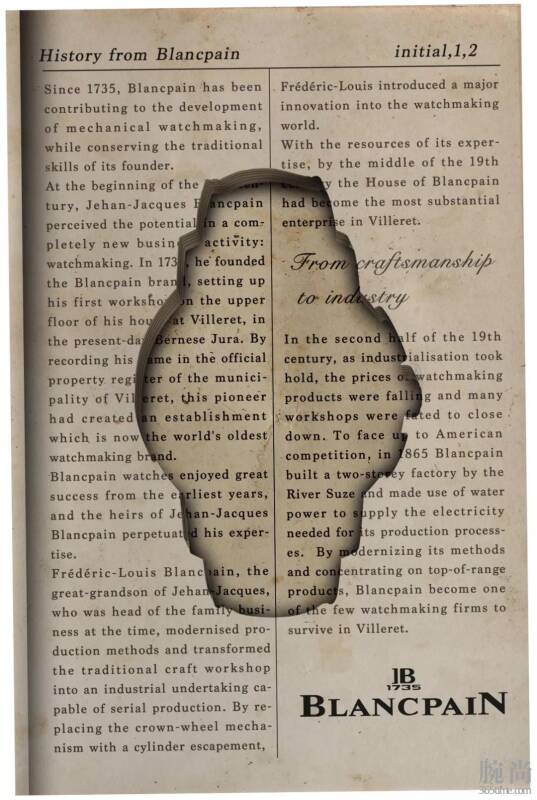 History from Blancpain
initial,1,2
Since 1735, Blancpain has been
contributing to the development
of mechanical watchmaking,
while conserving the traditional
skills of its founder.
At the beginning of the
tury, Jehan-Jacques Blancpain
perceived the potential in a com-
pletely new business activity:
watchmaking. In 1735, he founded
the Blancpain brand, setting up
his first workshop on the upper
floor of his house at Villeret, in
the present-day Bernese Jura. By
recording his name in the official
property register of the munici-
pality of Villeret, this pioneer
had created an establishment
which is now the world's oldest
watchmaking brand.
Blancpain watches enjoyed great
success from the earliest years,
and the heirs of Jehan-Jacques
Blancpain perpetuated his exper-
tise.
Frédéric-Louis Blancpain, the
great-grandson of Jehan-Jacques,
who was head of the family busi-
ness at the time, modernised pro-
duction methods and transformed
the traditional craft workshop
into an industrial undertaking ca-
pable of serial production. By re-
placing the crown-wheel mecha-
nism with a cylinder escapement,
Frédéric-Louis introduced a major
innovation into the watchmaking
world.
With the resources of its exper-
tise, by the middle of the 19th
century the House of Blancpain
had become the most substantial
enterprise in Villeret.
From craftsmanship
to industry
In the second half of the 19th
century, as industrialisation took
hold, the prices of watchmaking
products were falling and many
workshops were fated to close
down. To face up to American
competition, in 1865 Blancpain
built a two-storey factory by the
River Suze and made use of water
power to supply the electricity
needed for its production process-
es. By modernizing its methods
and concentrating on top-of-range
products, Blancpain become one
of the few watchmaking firms to
survive in Villeret.
JB
1735
BLANCPAIN
腕尚